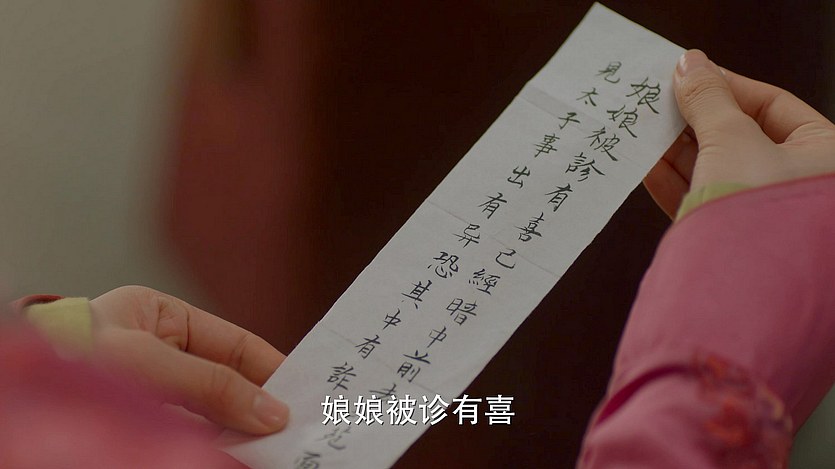 娘娘被診有喜已經暗中前去
見太子事出有异恐其中有詐
娘娘被诊有喜